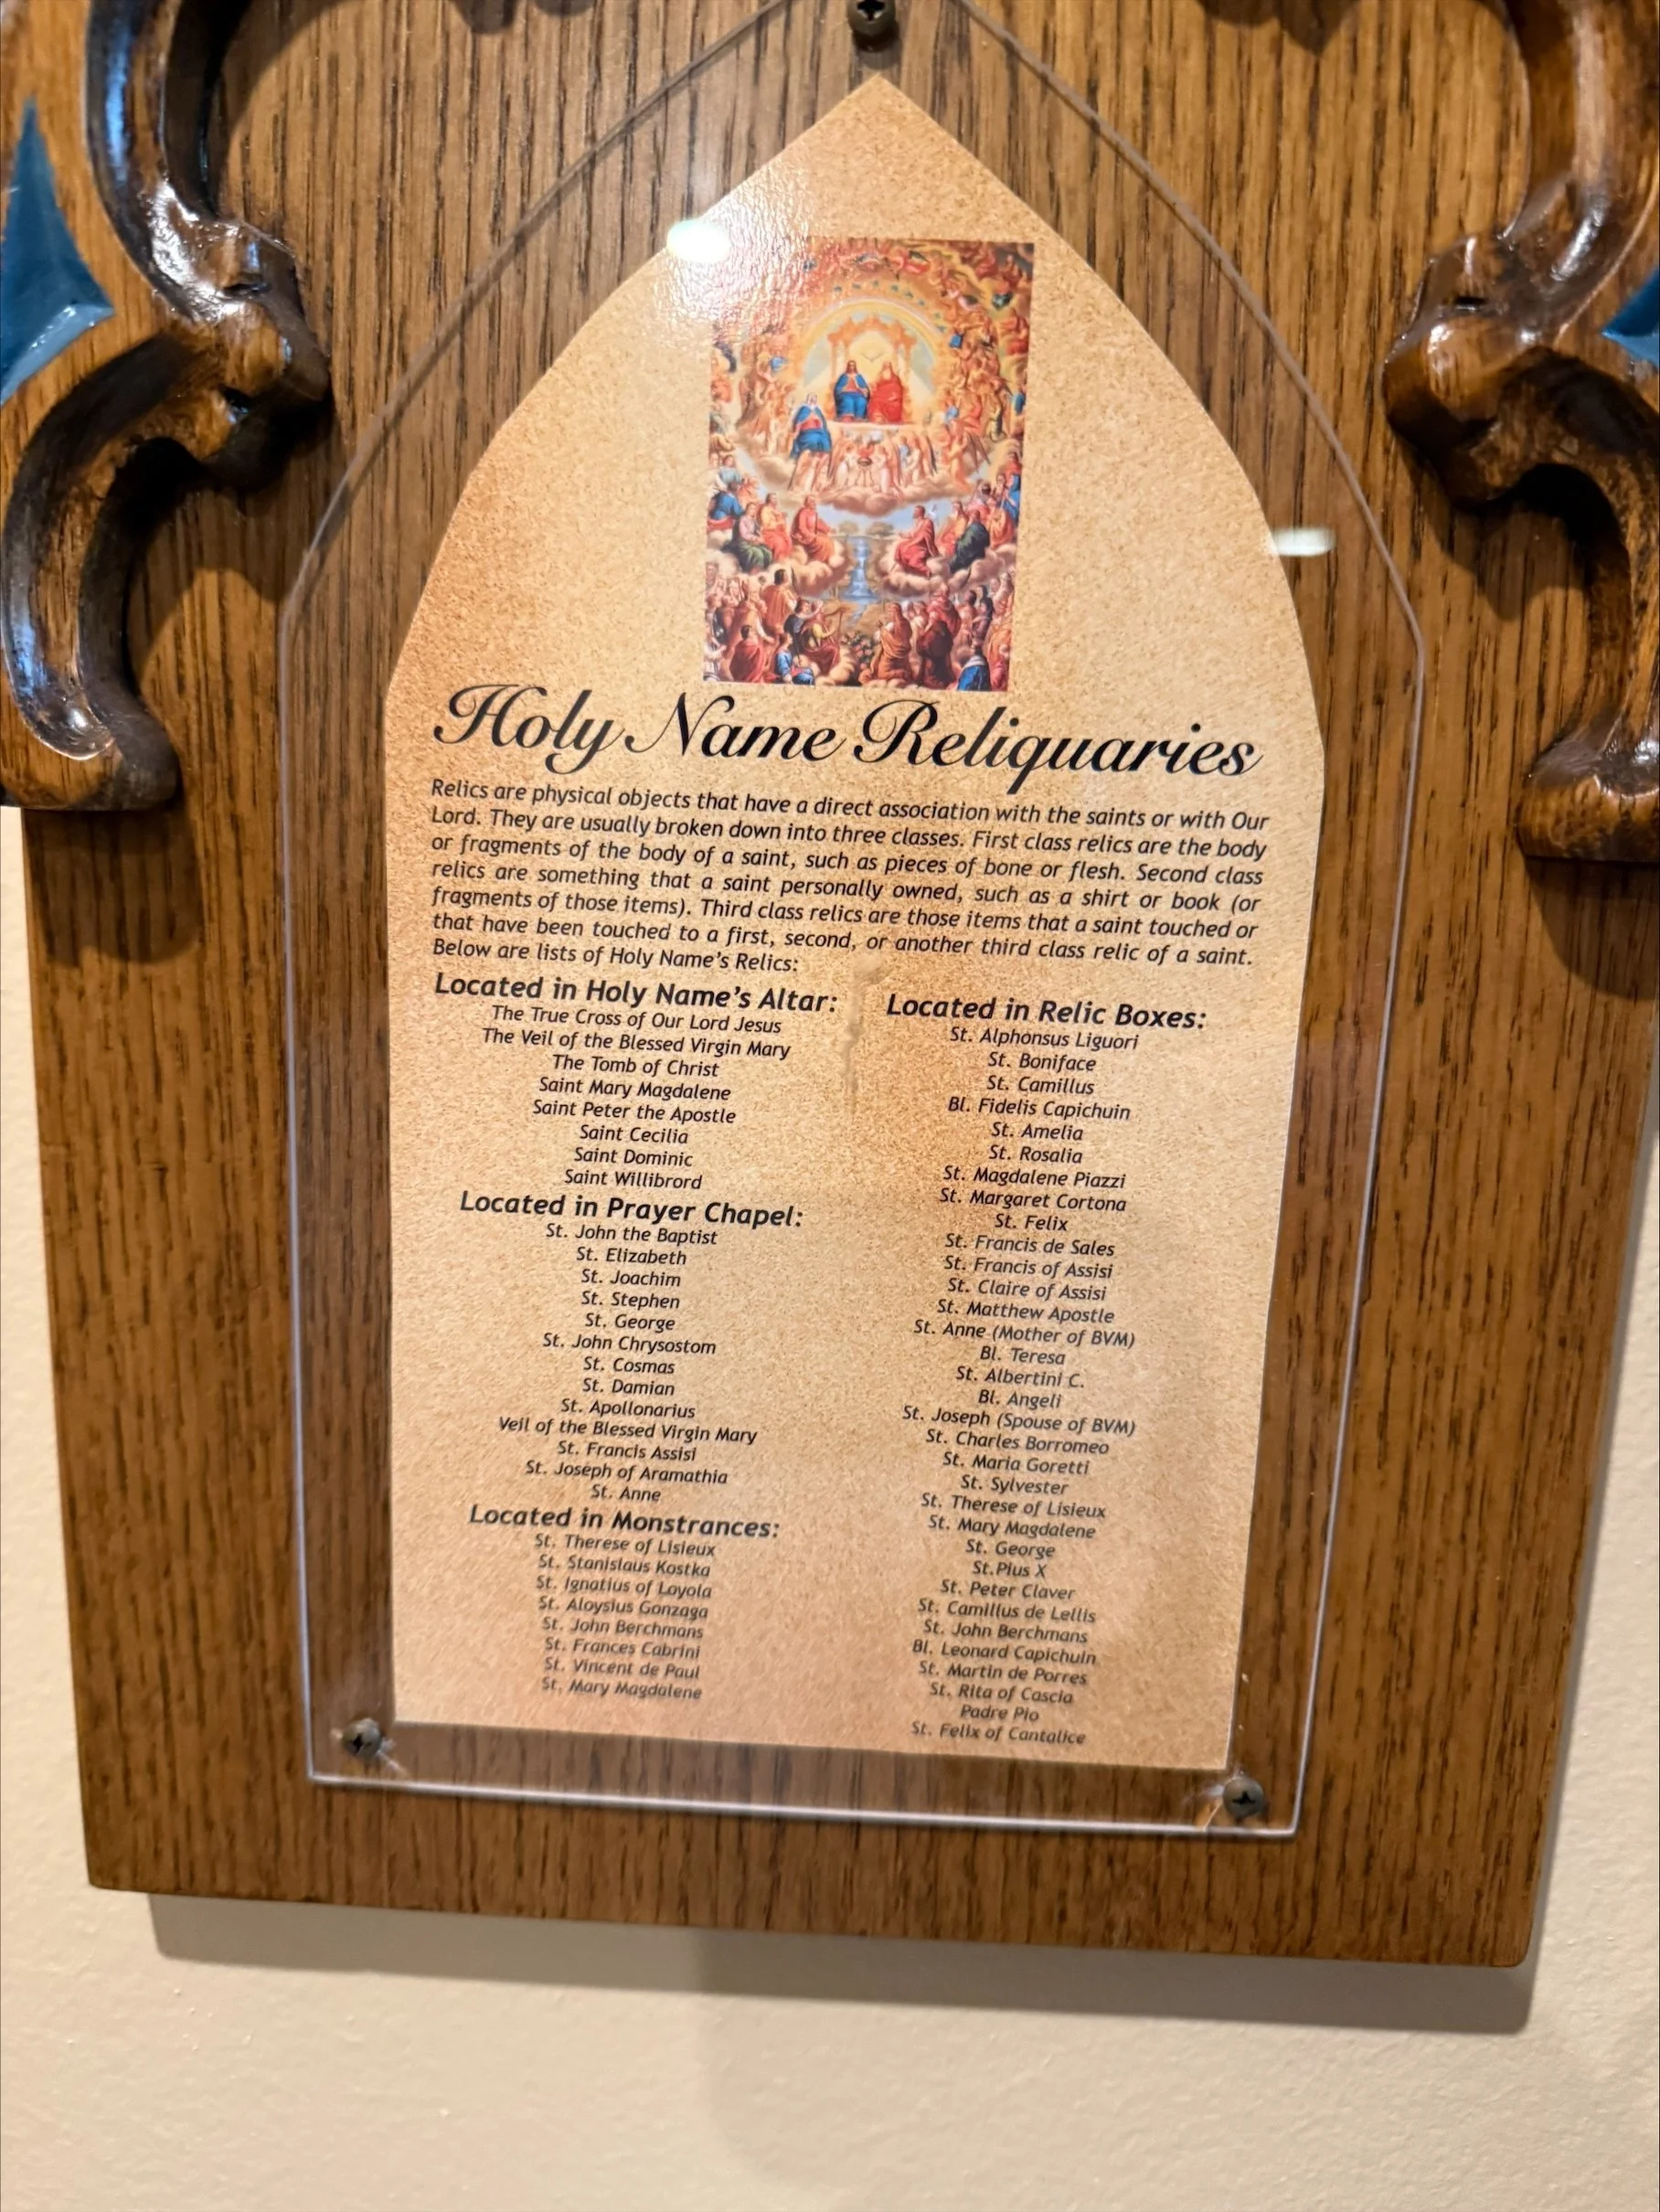 Holy Name Reliquaries
Relics are physical objects that have a direct association with the saints or with Our
Lord. They are usually broken down into three classes. First class relics are the body
or fragments of the body of a saint, such as pieces of bone or flesh. Second class
relics are something that a saint personally owned, such as a shirt or book (or
fragments of those items). Third class relics are those items that a saint touched or
that have been touched to a first, second, or another third class relic of a saint.
Below are lists of Holy Name's Relics:
Located in Holy Name's Altar:
The True Cross of Our Lord Jesus
The Veil of the Blessed Virgin Mary
The Tomb of Christ
Saint Mary Magdalene
Saint Peter the Apostle
Saint Cecilia
Saint Dominic
Saint Willibrord
Located in Prayer Chapel:
St. John the Baptist
St. Elizabeth
St. Joachim
St. Stephen
St. George
St. John Chrysostom
St. Cosmas
St. Damian
St. Apollonarius
Veil of the Blessed Virgin Mary
St. Francis Assisi
St. Joseph of Aramathia
St. Anne
Located in Monstrances:
St. Therese of Lisieux
St. Stanislaus Kostka
St. Ignatius of Loyola
St. Aloysius Gonzaga
St. John Berchmans
St. Frances Cabrini
St. Vincent de Paul
St. Mary Magdalene
Located in Relic Boxes:
St. Alphonsus Liguori
St. Boniface
St. Camillus
Bl. Fidelis Capichuin
St. Amelia
St. Rosalia
St. Magdalene Piazzi
St. Margaret Cortona
St. Felix
St. Francis de Sales
St. Francis of Assisi
St. Claire of Assisi
St. Matthew Apostle
St. Anne (Mother of BVM)
Bl. Teresa
St. Albertini C.
Bl. Angeli
St. Joseph (Spouse of BVM)
St. Charles Borromeo
St. Maria Goretti
St. Sylvester
St. Therese of Lisieux
St. Mary Magdalene
St. George
St.Pius X
St. Peter Claver
St. Camillus de Lellis
St. John Berchmans
Bl. Leonard Capichuin
St. Martin de Porres
St. Rita of Cascia
Padre Pio
St. Felix of Cantalice